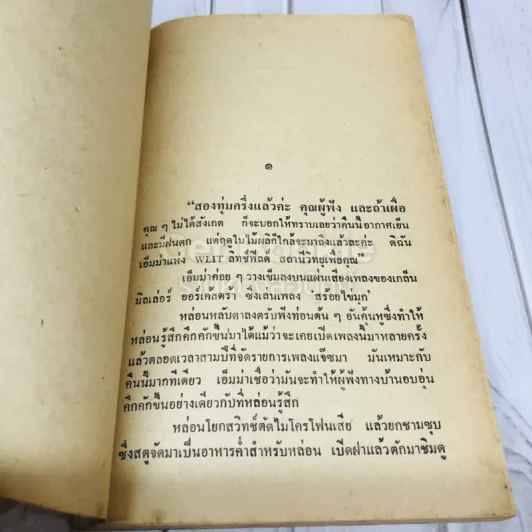 ๑
“สองทุ่มครึ่งแล้วค่ะ คุณผู้ฟัง และถ้าเผื่อ
คุณ ๆ ไม่ได้สังเกต ก็จะบอกให้ทราบเลยว่าคืนนี้อากาศเย็น
และมีฝนตก แต่ฤดูใบไม้ผลิก็ใกล้จะมาถึงแล้วละค่ะ ดิฉัน
เอ็มม่าแห่ง WLIT ลิทช์ฟีลด์ สถานีวิทยุเพื่อคุณ”
เอ็มม่าค่อย ๆ วางเข็มลงบนแผ่นเสียงเพลงของเกล็น
มิลเล่อร์ ออร์เคสตร้า ซึ่งเล่นเพลง ‘สร้อยไข่มุก’
หล่อนหลับตาลงตรับฟังท่อนต้น ๆ อันคุ้นหูซึ่งทำให้
หล่อนรู้สึกคึกคักขึ้นมาได้แม้ว่าจะเคยเปิดเพลงนี้มาหลายครั้ง
แล้วตลอดเวลาสามปีที่จัดรายการเพลงแจ๊ซมา มันเหมาะกับ
คืนนี้มากทีเดียว เอ็มม่าเชื่อว่ามันจะทำให้ผู้ฟังทางบ้านอบอุ่น
คึกคักขึ้นอย่างเดียวกับที่หล่อนรู้สึก
หล่อนโยกสวิทช์ตัดไมโครโฟนเสีย แล้วยกชามซุบ
ซึ่งสตูจัดมาเป็นอาหารค่ำสำหรับหล่อน เปิดฝาแล้วตักมาชิมดู